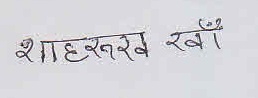 शाहरूख खाँ